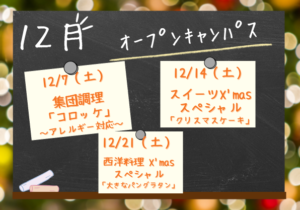 12月
オープンキャンパス
12/7（土）
集団調理
「コロッケ」
～アレルギー対応～
12/14（土）
スイーツX'mas
スペシャル
「クリスマスケーキ」
12/21（土）
西洋料理 X'mas
スペシャル
「大きなパングラタン」